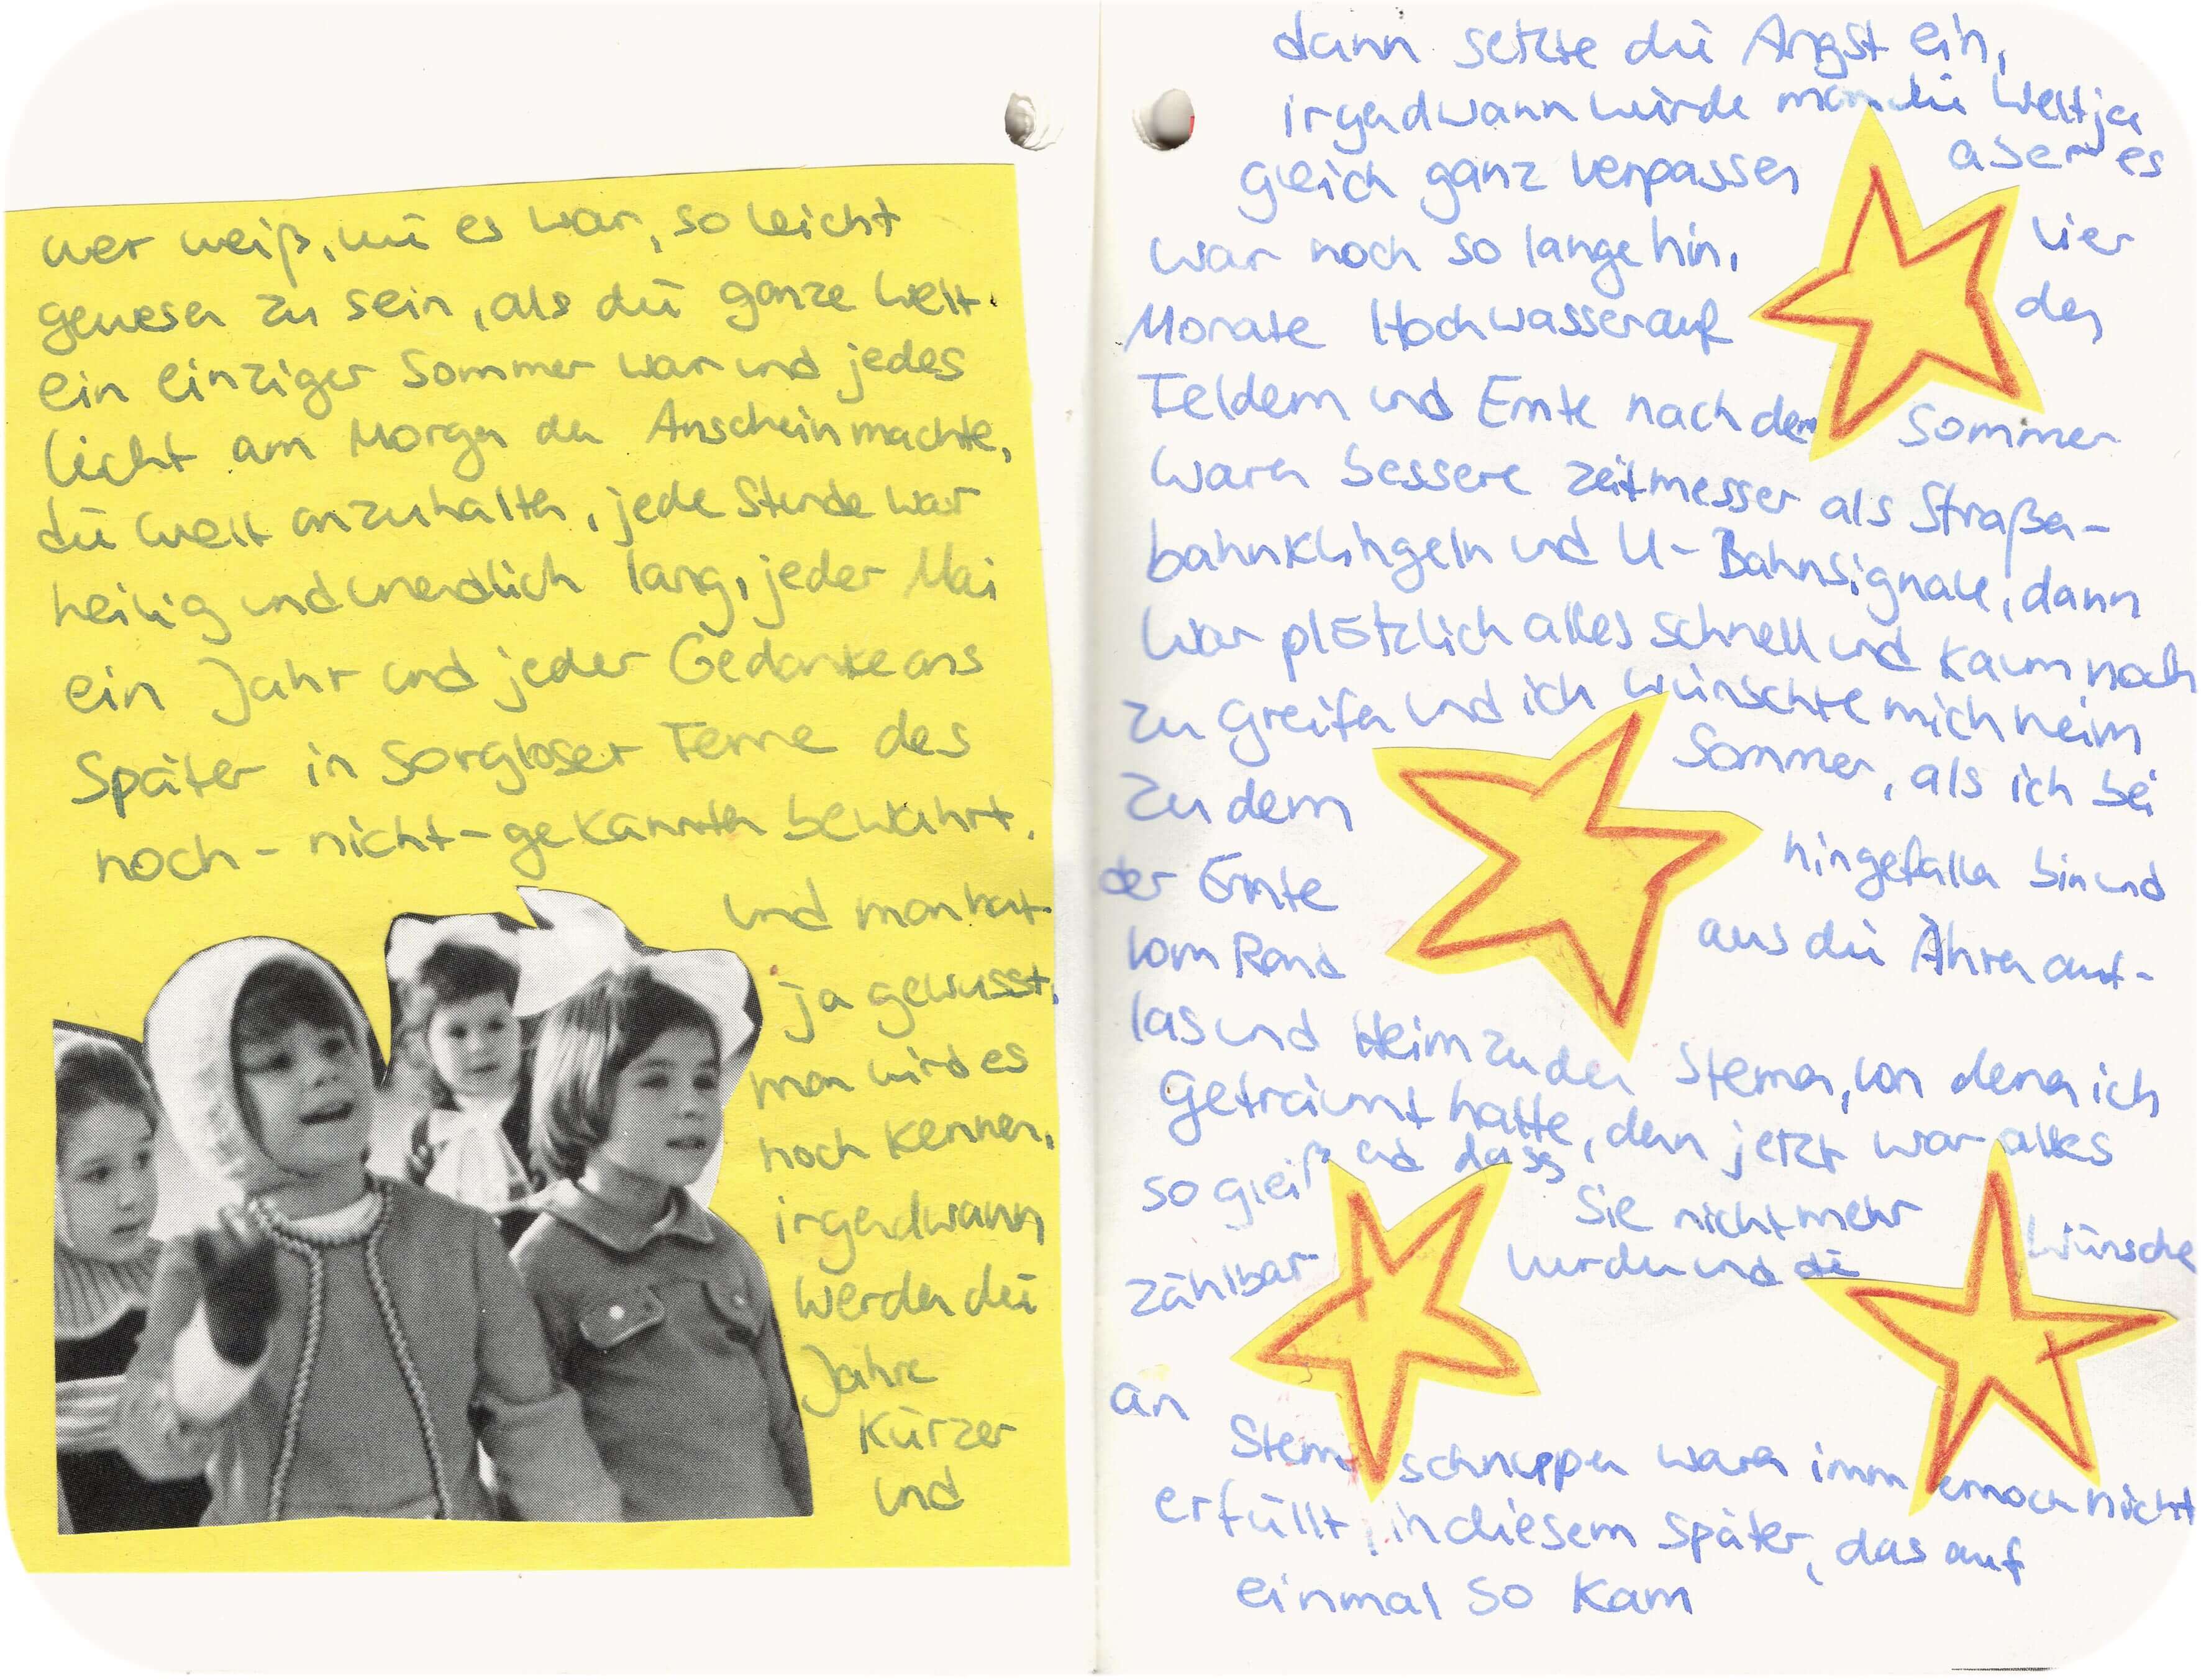 wer weiß, wie es war, so leicht
gewesen zu sein, als die ganze Welt
ein einziger Sommer war und jedes
Licht am Morgen den Anschein machte,
die Welt anzuhalten, jede Stunde war
heilig und unendlich lang, jeder Mai
ein Jahr und jeder Gedanke ans
Später in sorgloser Ferne des
noch-nicht-gekannten bewahrt.
und man hat
ja gewusst,
man wird es
noch kennen,
irgendwann
werden die
Jahre
kürzer
und
dann setzte die Angst ein,
irgendwann würde man die Welt ja
gleich ganz verpassen aber es
war noch so lange hin. vier
Monate Hochwasser auf den
Feldern und Ernte nach dem Sommer
waren bessere Zeitmesser als Straßen-
bahnklingeln und U-Bahnsignale, dann
war plötzlich alles schnell und kaum noch
zu greifen und ich wünschte mich heim
zu dem Sommer, als ich bei
der Ernte hingefallen bin und
vom Rand aus die Ähren auf-
las und Heim zu den Sternen, von denen ich
geträumt hatte, denn jetzt war alles
so gleiß und dass sie nicht mehr
zählbar wurden und die Wünsche
an
Sternschnuppen waren immer noch nicht
erfüllt, in diesem Später, das auf
einmal so kam